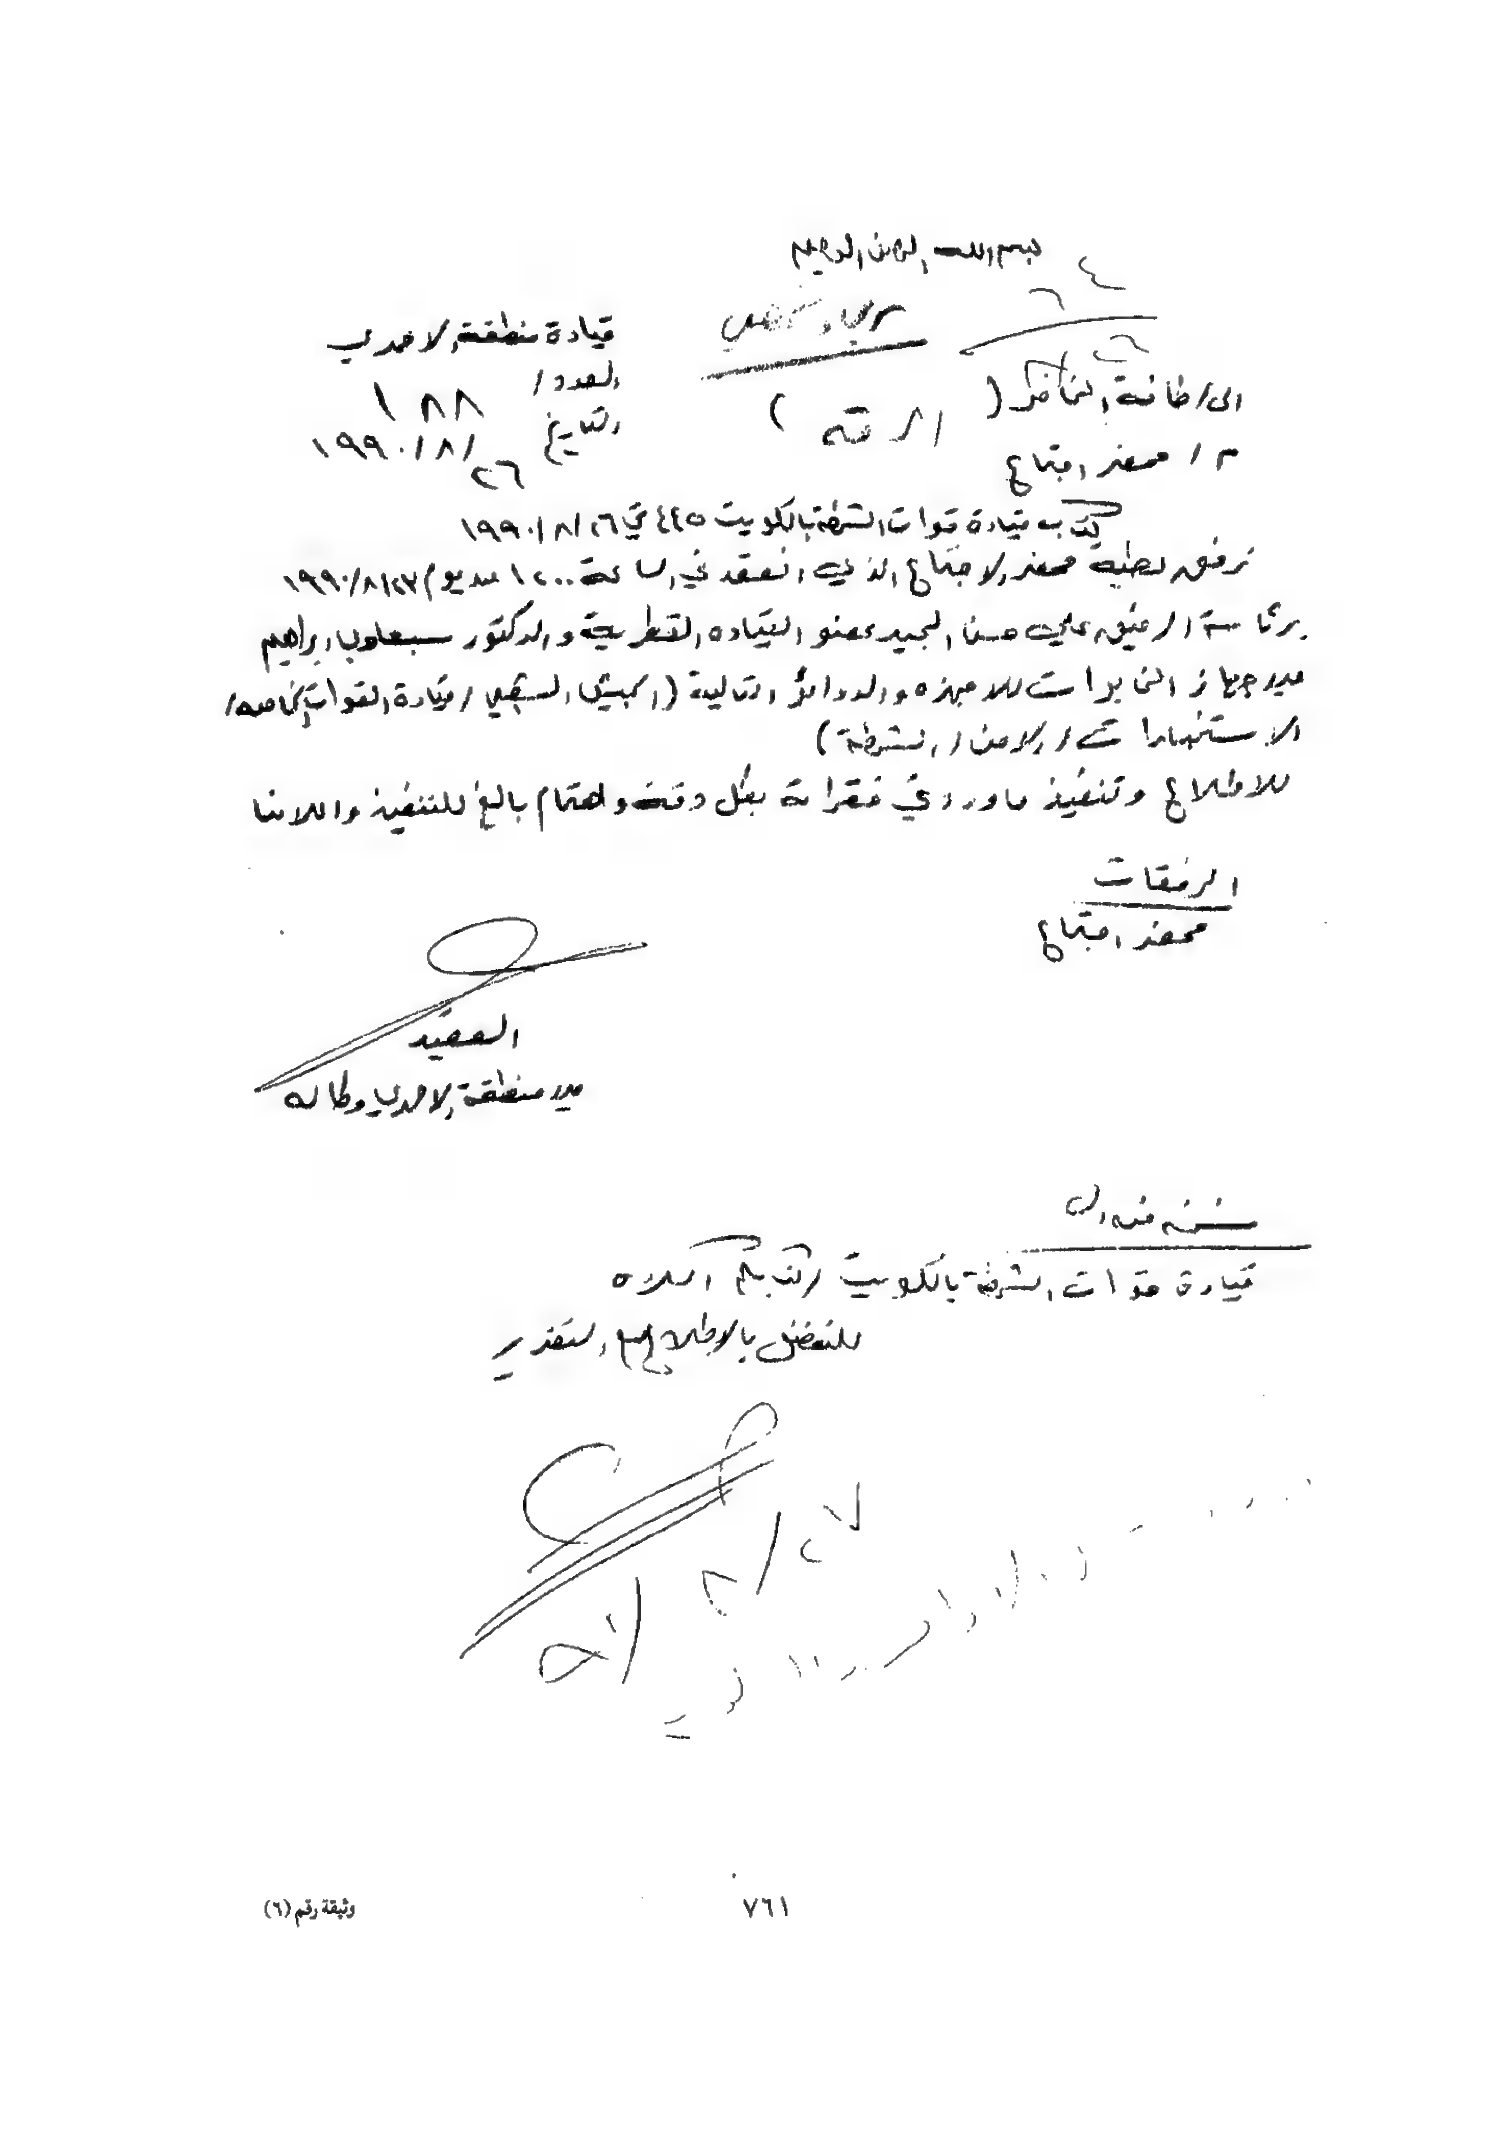 بسم الله الرحمن الرحيم
سري وشخصي
قيادة منطقة الاحمدي
العدد / ١٨٨
التاريخ ٢٦ / ٨ / ١٩٩٠
الى / كافة المخافر ( الرقه )
م / محضر اجتماع
كتاب قيادة قوات الشرطة بالكويت ٤٤٥ في ٢٦ / ٨ / ١٩٩٠
نرفق بطيه محضر الاجتماع الذي انعقد في الساعة ١٢٠٠ من يوم ٢٣ / ٨ / ١٩٩٠
برئاسة الرفيق علي حسن المجيد عضو القياده القطرية والدكتور سبعاوي ابراهيم
مدير جهاز المخابرات للاجهزه والدوائر التالية ( الجيش الشعبي / قيادة القوات الخاصه /
الاستخبارات / الامن / الشرطة )
للاطلاع وتنفيذ ما ورد في فقراته بكل دقه واهتمام بالغ للتنفيذ واعلامنا
المرفقات
محضر اجتماع
العقيد
مدير منطقة الاحمدي وكاله
نسخه منه الى
قيادة قوات الشرطة بالكويت / كتابكم اعلاه
للتفضل بالاطلاع مع التقدير
٢٧ / ٨ /
٧٦١
وثيقة رقم (٦)